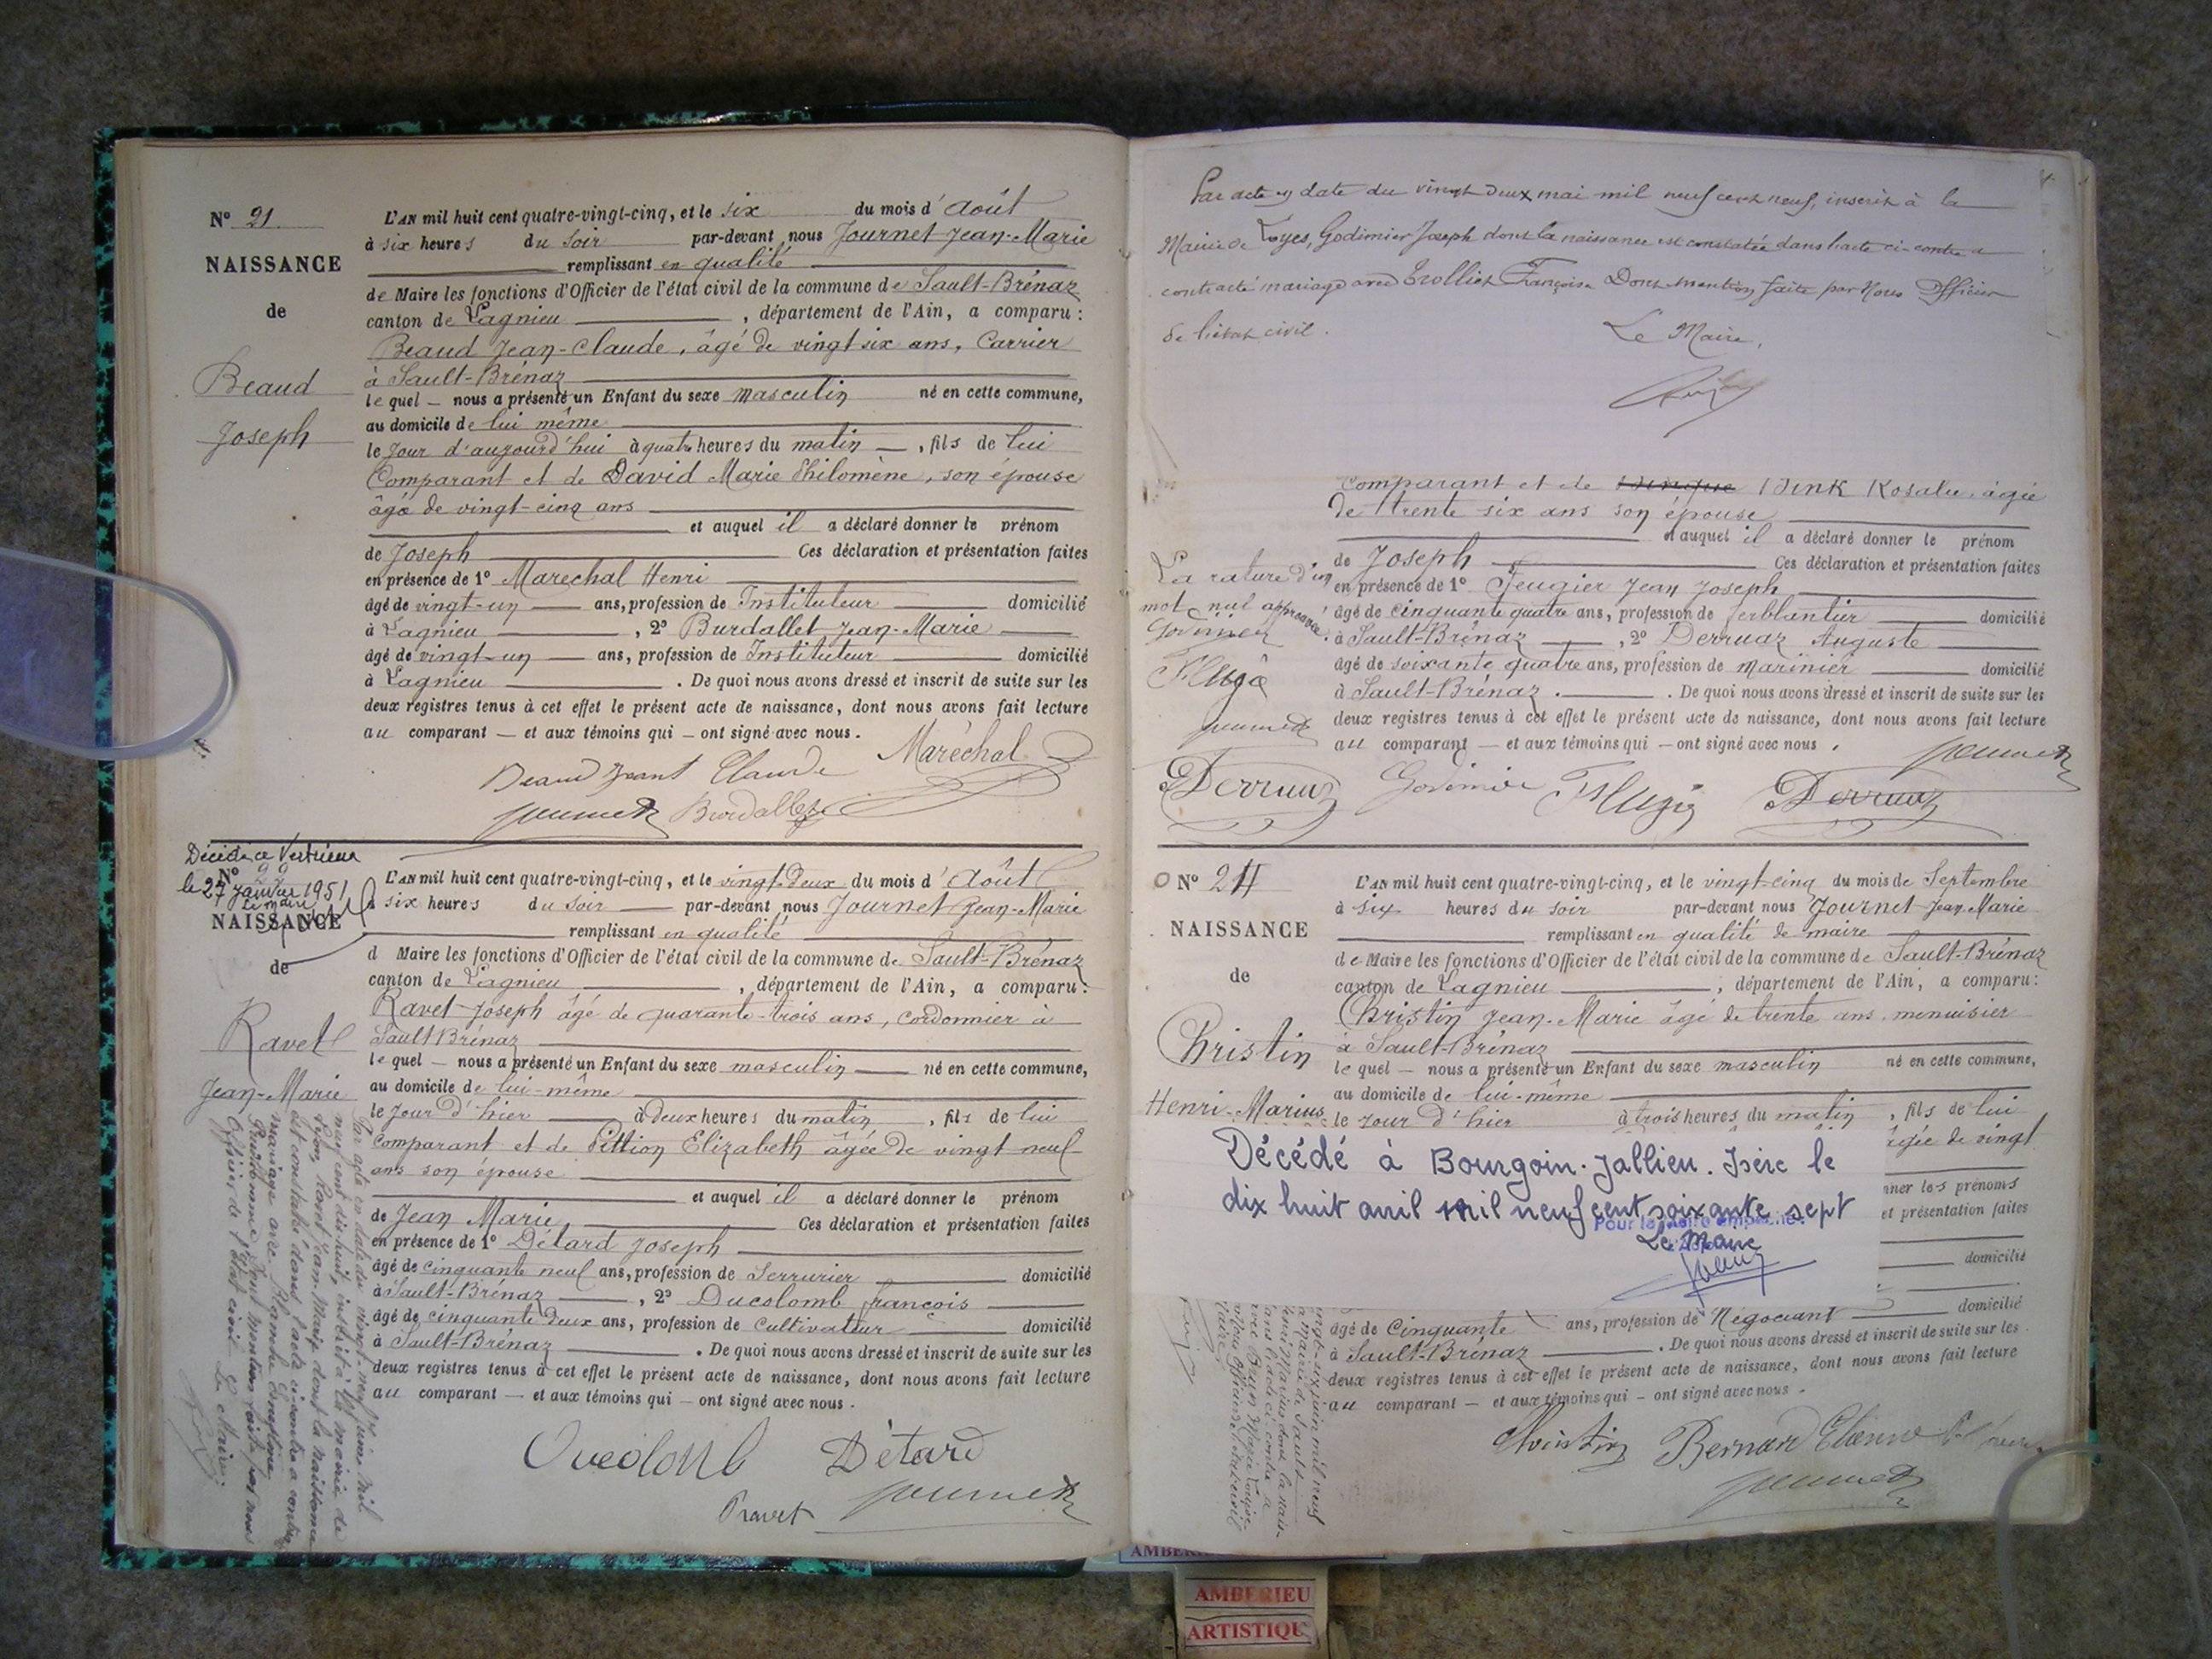 N° 21
NAISSANCE
de
Beaud
Joseph
L'AN mil huit cent quatre-vingt-cinq, et le six du mois d' Août
à six heures du soir par-devant nous Journet Jean-Marie
remplissant en qualité
de Maire les fonctions d'Officier de l'état civil de la commune de Sault-Brénaz
canton de Lagnieu, département de l'Ain, a comparu :
Beaud Jean-Claude, âgé de vingt six ans, Carrier
à Sault-Brénaz
le quel — nous a présenté un Enfant du sexe masculin né en cette commune,
au domicile de lui même
le jour d'aujourd'hui à quatre heures du matin —, fils de lui
Comparant et de David Marie Philomène, son épouse
âgée de vingt-cinq ans
et auquel il a déclaré donner le prénom
de Joseph Ces déclaration et présentation faites
en présence de 1° Marechal Henri
âgé de vingt-un ans, profession de Instituteur domicilié
à Lagnieu, 2° Burdallet Jean-Marie
âgé de vingt-un ans, profession de Instituteur domicilié
à Lagnieu. De quoi nous avons dressé et inscrit de suite sur les
deux registres tenus à cet effet le présent acte de naissance, dont nous avons fait lecture
au comparant — et aux témoins qui — ont signé avec nous.
Beaud Jeant Claude Maréchal
Journet Burdallet
Décédé à Vertrieu
N° 22
le 27 janvier 1951
Le Maire
NAISSANCE
de
Ravet
Jean-Marie
L'AN mil huit cent quatre-vingt-cinq, et le vingt-deux du mois d' Août
à six heures du soir par-devant nous Journet Jean-Marie
remplissant en qualité
d Maire les fonctions d'Officier de l'état civil de la commune de Sault-Brénaz
canton de Lagnieu, département de l'Ain, a comparu :
Ravet Joseph âgé de quarante-trois ans, cordonnier à
Sault Brénaz
le quel — nous a présenté un Enfant du sexe masculin né en cette commune,
au domicile de lui-même
le jour d'hier à deux heures du matin, fils de lui
Comparant et de Pittion Elizabeth âgée de vingt neuf
ans son épouse
et auquel il a déclaré donner le prénom
de Jean Marie Ces déclaration et présentation faites
en présence de 1° Détard Joseph
âgé de cinquante neuf ans, profession de Serrurier domicilié
à Sault-Brénaz, 2° Ducolomb françois
âgé de cinquante deux ans, profession de Cultivateur domicilié
à Sault-Brénaz. De quoi nous avons dressé et inscrit de suite sur les
deux registres tenus à cet effet le présent acte de naissance, dont nous avons fait lecture
au comparant — et aux témoins qui — ont signé avec nous.
Par acte en date du vingt-neuf juin mil
neuf cent dix huit, inscrit à la mairie de
Lyon, Ravet Jean-Marie dont la naissance
est constatée dans l'acte ci-contre a contracté
mariage avec
Prudhomme Dont mention faite par nous
Officier de l'état civil. Le Maire :
Ducolomb Détard
Ravet Journet
Par acte en date du vingt deux mai mil neuf cent neuf, inscrit à la
Mairie de Loyes, Godimier Joseph dont la naissance est constatée dans l'acte ci-contre a
contracté mariage avec Trolliet Françoise Dont mention faite par Nous Officier
de l'état civil.
Le Maire,
Comparant et de Rosalie âgée
de trente six ans son épouse
et auquel il a déclaré donner le prénom
de Joseph Ces déclaration et présentation faites
en présence de 1° Feugier Jean Joseph
âgé de cinquante quatre ans, profession de ferblantier domicilié
à Sault-Brénaz, 2° Derruaz Auguste
âgé de soixante quatre ans, profession de marinier domicilié
à Sault-Brénaz. De quoi nous avons dressé et inscrit de suite sur les
deux registres tenus à cet effet le présent acte de naissance, dont nous avons fait lecture
au comparant — et aux témoins qui — ont signé avec nous.
La rature d'un
mot nul approuvée.
Godimier
Journet
Journet
Derruaz Godimier Derruaz
N° 24
NAISSANCE
de
Christin
Henri-Marius
L'AN mil huit cent quatre-vingt-cinq, et le vingt-cinq du mois de Septembre
à six heures du soir par-devant nous Journet Jean Marie
remplissant en qualité de maire
de Maire les fonctions d'Officier de l'état civil de la commune de Sault-Brénaz
canton de Lagnieu, département de l'Ain, a comparu :
Christin Jean-Marie âgé de trente ans, menuisier
à Sault-Brénaz
le quel — nous a présenté un Enfant du sexe masculin né en cette commune,
au domicile de lui-même
le jour d'hier à trois heures du matin, fils de lui
âgée de vingt
Décédé à Bourgoin-Jallieu. Isère le
dix huit avril mil neuf cent soixante sept
Le Maire
ner les prénoms
et présentation faites
domicilié
âgé de Cinquante ans, profession de Négociant domicilié
à Sault-Brénaz. De quoi nous avons dressé et inscrit de suite sur les
deux registres tenus à cet effet le présent acte de naissance, dont nous avons fait lecture
au comparant — et aux témoins qui — ont signé avec nous.
Christin Bernard Etienne
Journet
AMBERIEU
ARTISTIQU